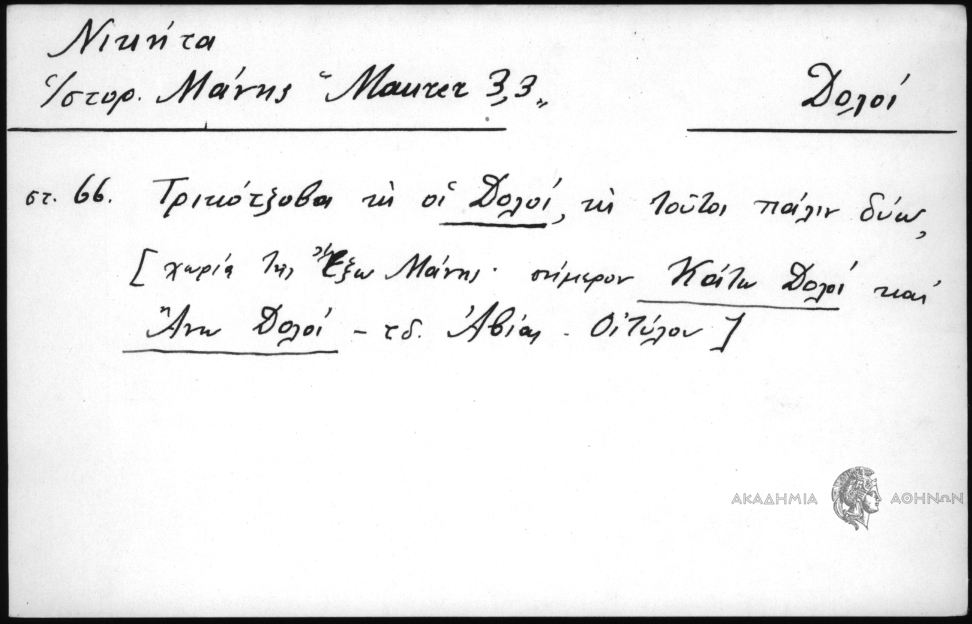 Νικήτα
Ἱστορ. Μάνης "Maurer 3,3"
Δολοί
στ. 66. Τρικότζοβα κὴ οἱ Δολοί, κὴ τοῦτοι πάλιν δύω,
[χωριά τῆς Ἔξω Μάνης· σήμερον Κάτω Δολοί καί
Ἄνω Δολοί – τδ. Ἀβίας - Οἰτύλου]
ΑΚΑΔΗΜΙΑ ΑΘΗΝΩΝ